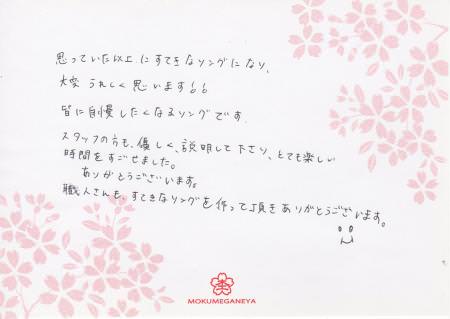 思っていた以上にすてきなリングになり、
大変うれしく思います!!
皆に自慢したくなるリングです.
スタッフの方も、優しく、説明して下さり、とても楽しい
時間をすごせました。
ありがとうございます。
職人さんも、すてきなリングを作って頂きありがとうございます。
杢
MOKUMEGANEYA